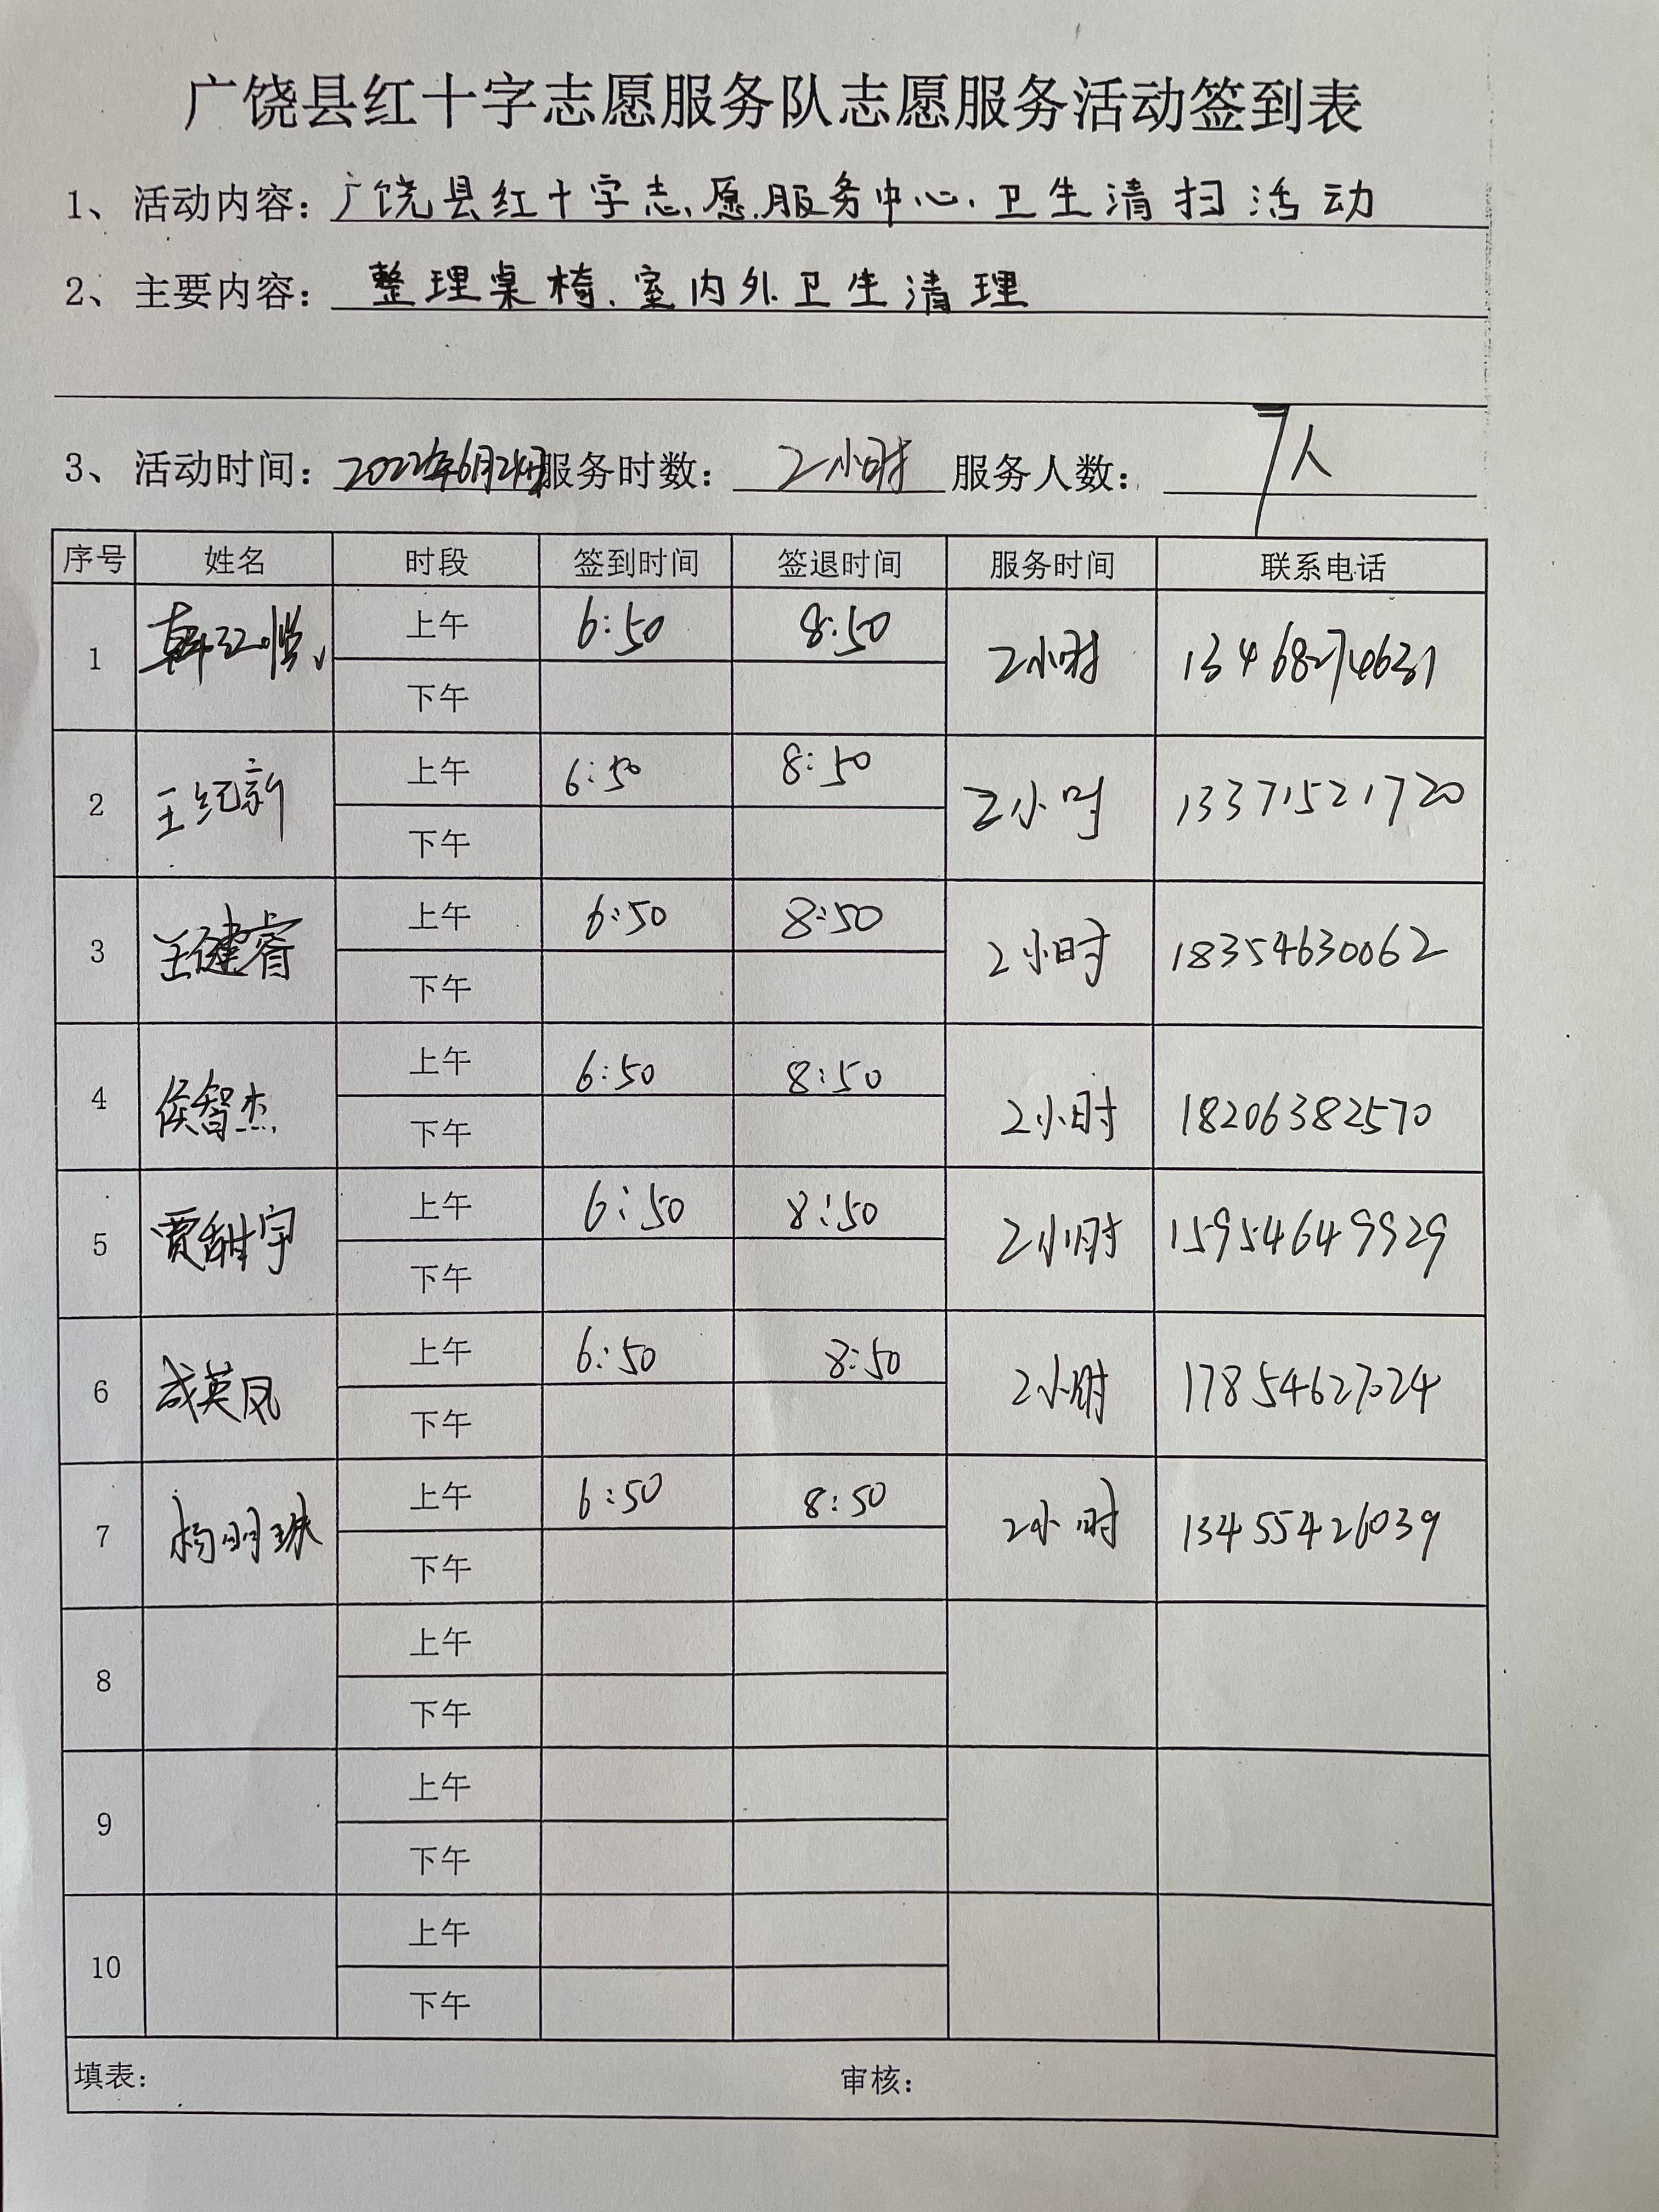 广饶县红十字志愿服务队志愿服务活动签到表
1、活动内容：广饶县红十字志愿服务中心卫生清扫活动
2、主要内容：整理桌椅、室内外卫生清理
3、活动时间：2022年6月24日服务时数：2小时 服务人数：7人
序号 姓名 时段 签到时间 签退时间 服务时间 联系电话
上午 6:50 8:50
1 韩红悦 2小时 13468274631
下午
上午 6:50 8:50
2 王纪新 2小时 13371521720
下午
上午 6:50 8:50
3 王健睿 2小时 18354630062
下午
上午 6:50 8:50
4 侯智杰 2小时 18206382570
下午
上午 6:50 8:50
5 贾甜宇 2小时 15954649929
下午
上午 6:50 8:50
6 成英凤 2小时 17854627024
下午
上午 6:50 8:50
7 杨明珠 2小时 13455426039
下午
上午
8
下午
上午
9
下午
上午
10
下午
填表： 审核：